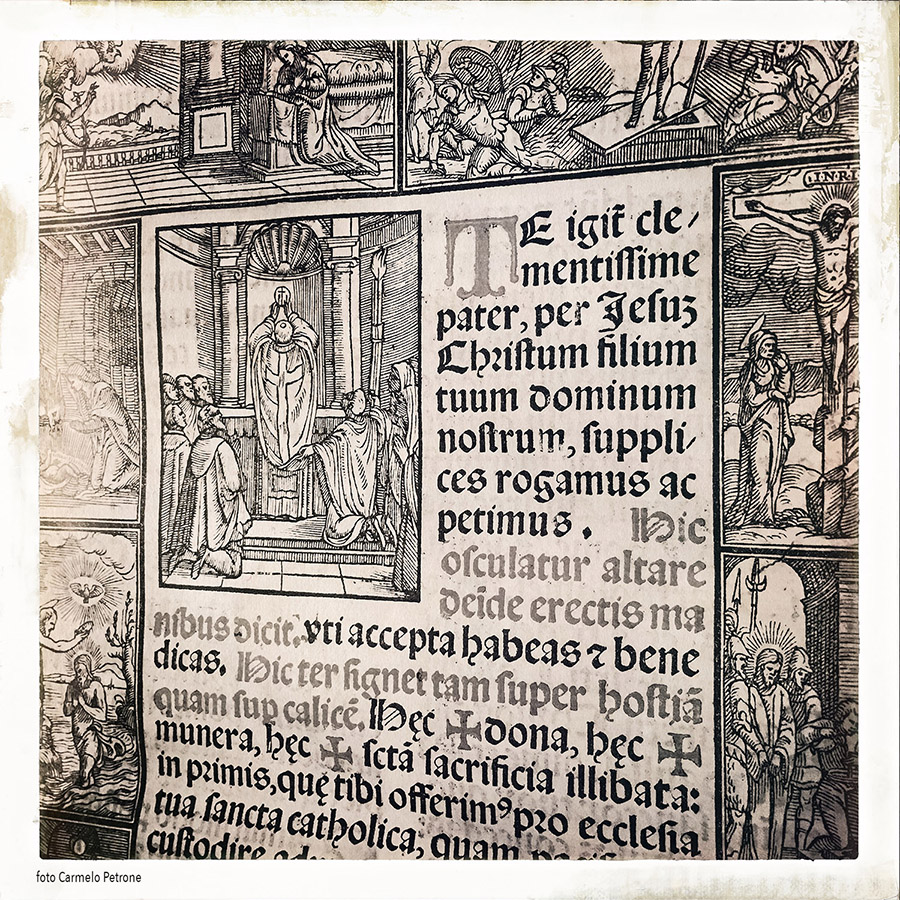 INRI
TE igit̄ cle/
mentiſſime
pater, per Jeſuꝫ
Chriſtum filium
tuum dominum
noſtrum, ſuppli/
ces rogamus ac
petimus. Hic
oſculatur altare
deīde erectis ma
nibus dicit. vti accepta habeas ⁊ bene
dicas. Hic ter ſignet tam ſuper hoſtiā
quam ſup calicē. Hęc ✠ dona, hęc ✠
munera, hęc ✠ ſctā ſacrificia illibata:
in primis, quę tibi offerimꝰ pro eccleſia
tua ſancta catholica; quam
cuſtodire
foto Carmelo Petrone